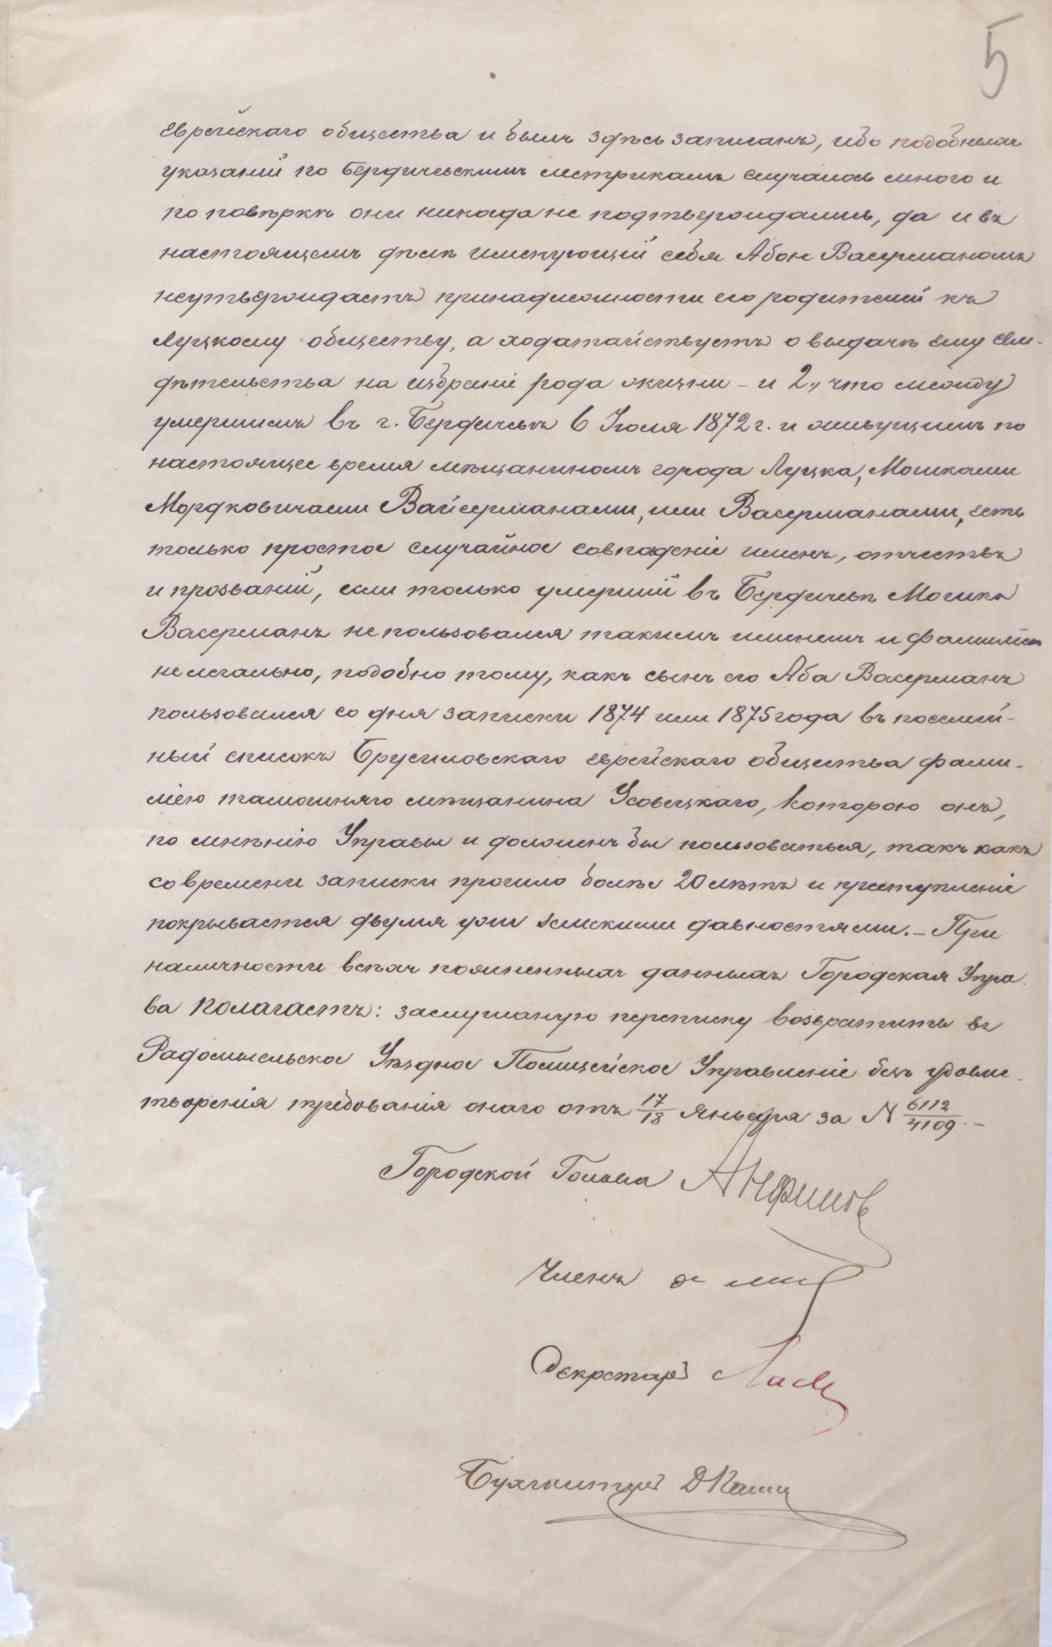 5
еврейскаго общества и былъ здѣсь записанъ, ибо подобныхъ
указаній по Бердичевскимъ метрикамъ случалось много и
по повѣркѣ они никогда не подтверждались, да и въ
настоящемъ дѣлѣ именующій себя Абою Васерманомъ
неутверждаетъ принадлежности его родителей къ
Луцкому обществу, а ходатайствуетъ о выдачѣ ему сви-
дѣтельства на избраніе рода жизни – и 2, что между
умершимъ въ г. Бердичевѣ 6 Іюля 1872 г. и живущимъ по
настоящее время мѣщаниномъ города Луцка, Мошками
Мордковичами Вайсерманами, или Васерманами, есть
только простое случайное совпаденіе именъ, отчествъ
и прозваній, если только умершій въ Бердичевѣ Мошко
Васерманъ не пользовался такимъ именемъ и фамиліею
нелегально, подобно тому, какъ сынъ его Аба Васерманъ
пользовался со дня записки 1874 или 1875 года въ посемей-
ный списокъ Брусиловскаго еврейскаго общества фами-
ліею тамошняго мѣщанина Усовецкаго, которою онъ,
по мнѣнію Управы и долженъ бы пользоваться, такъ какъ
со времени записки прошло болѣе 20 лѣтъ и преступленіе
покрывается двумя уже земскими давностями. – При
наличности всѣхъ поясненныхъ данныхъ Городская Упра-
ва полагаетъ: заслушаную переписку возвратить въ
Радомысльское Уѣздное Полицейское Управленіе безъ удовле-
творенія требованія онаго отъ 17/18 Января за N 6112/4109. –
Городской Голова
Членъ
Секретарь
Бухгалтеръ